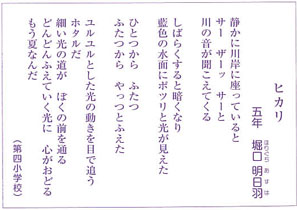 ヒカリ
五年　堀口　明日羽
ほりぐち　あすは
静かに川岸に座っていると
サー　ザーッ　サーと
川の音が聞こえてくる
しばらくすると暗くなり
藍色の水面にポツリと光が見えた
ひとつから　ふたつ
ふたつから　やっつとふえた
ユルユルとした光の動きを目で追う
ホタルだ
細い光の道が　ぼくの前を通る
どんどんふえていく光に　心がおどる
もう夏なんだ
（第四小学校）